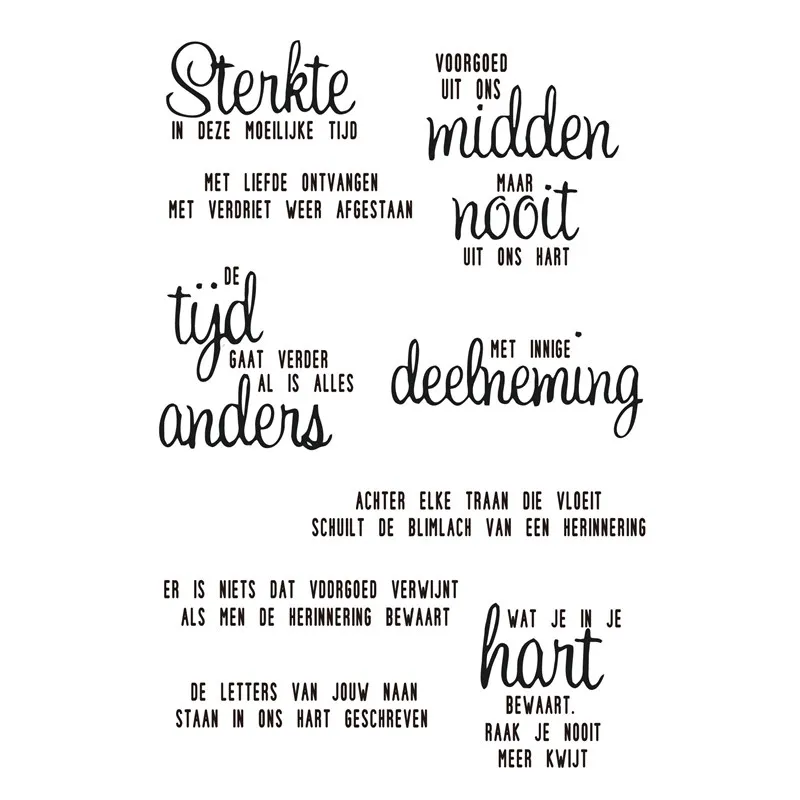 Sterkte
IN DEZE MOEILIJKE TIJD
VOORGOED
UIT ONS
midden
MAAR
nooit
UIT ONS HART
MET LIEFDE ONTVANGEN
MET VERDRIET WEER AFGESTAAN
DE
tijd
GAAT VERDER
AL IS ALLES
anders
MET INNIGE
deelneming
ACHTER ELKE TRAAN DIE VLOEIT
SCHUILT DE BLIMLACH VAN EEN HERINNERING
ER IS NIETS DAT VDDRGOED VERWIJNT
ALS MEN DE HERINNERING BEWAART
WAT JE IN JE
hart
BEWAART.
RAAK JE NOOIT
MEER KWIJT
DE LETTERS VAN JOUW NAAN
STAAN IN ONS HART GESCHREVEN